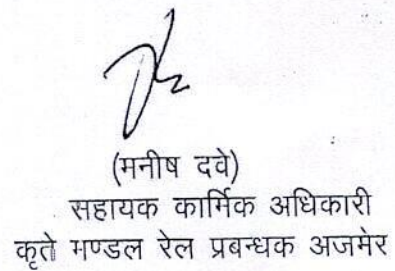 (मनीष दवे)
सहायक कार्मिक अधिकारी
कृते मण्डल रेल प्रबन्धक अजमेर